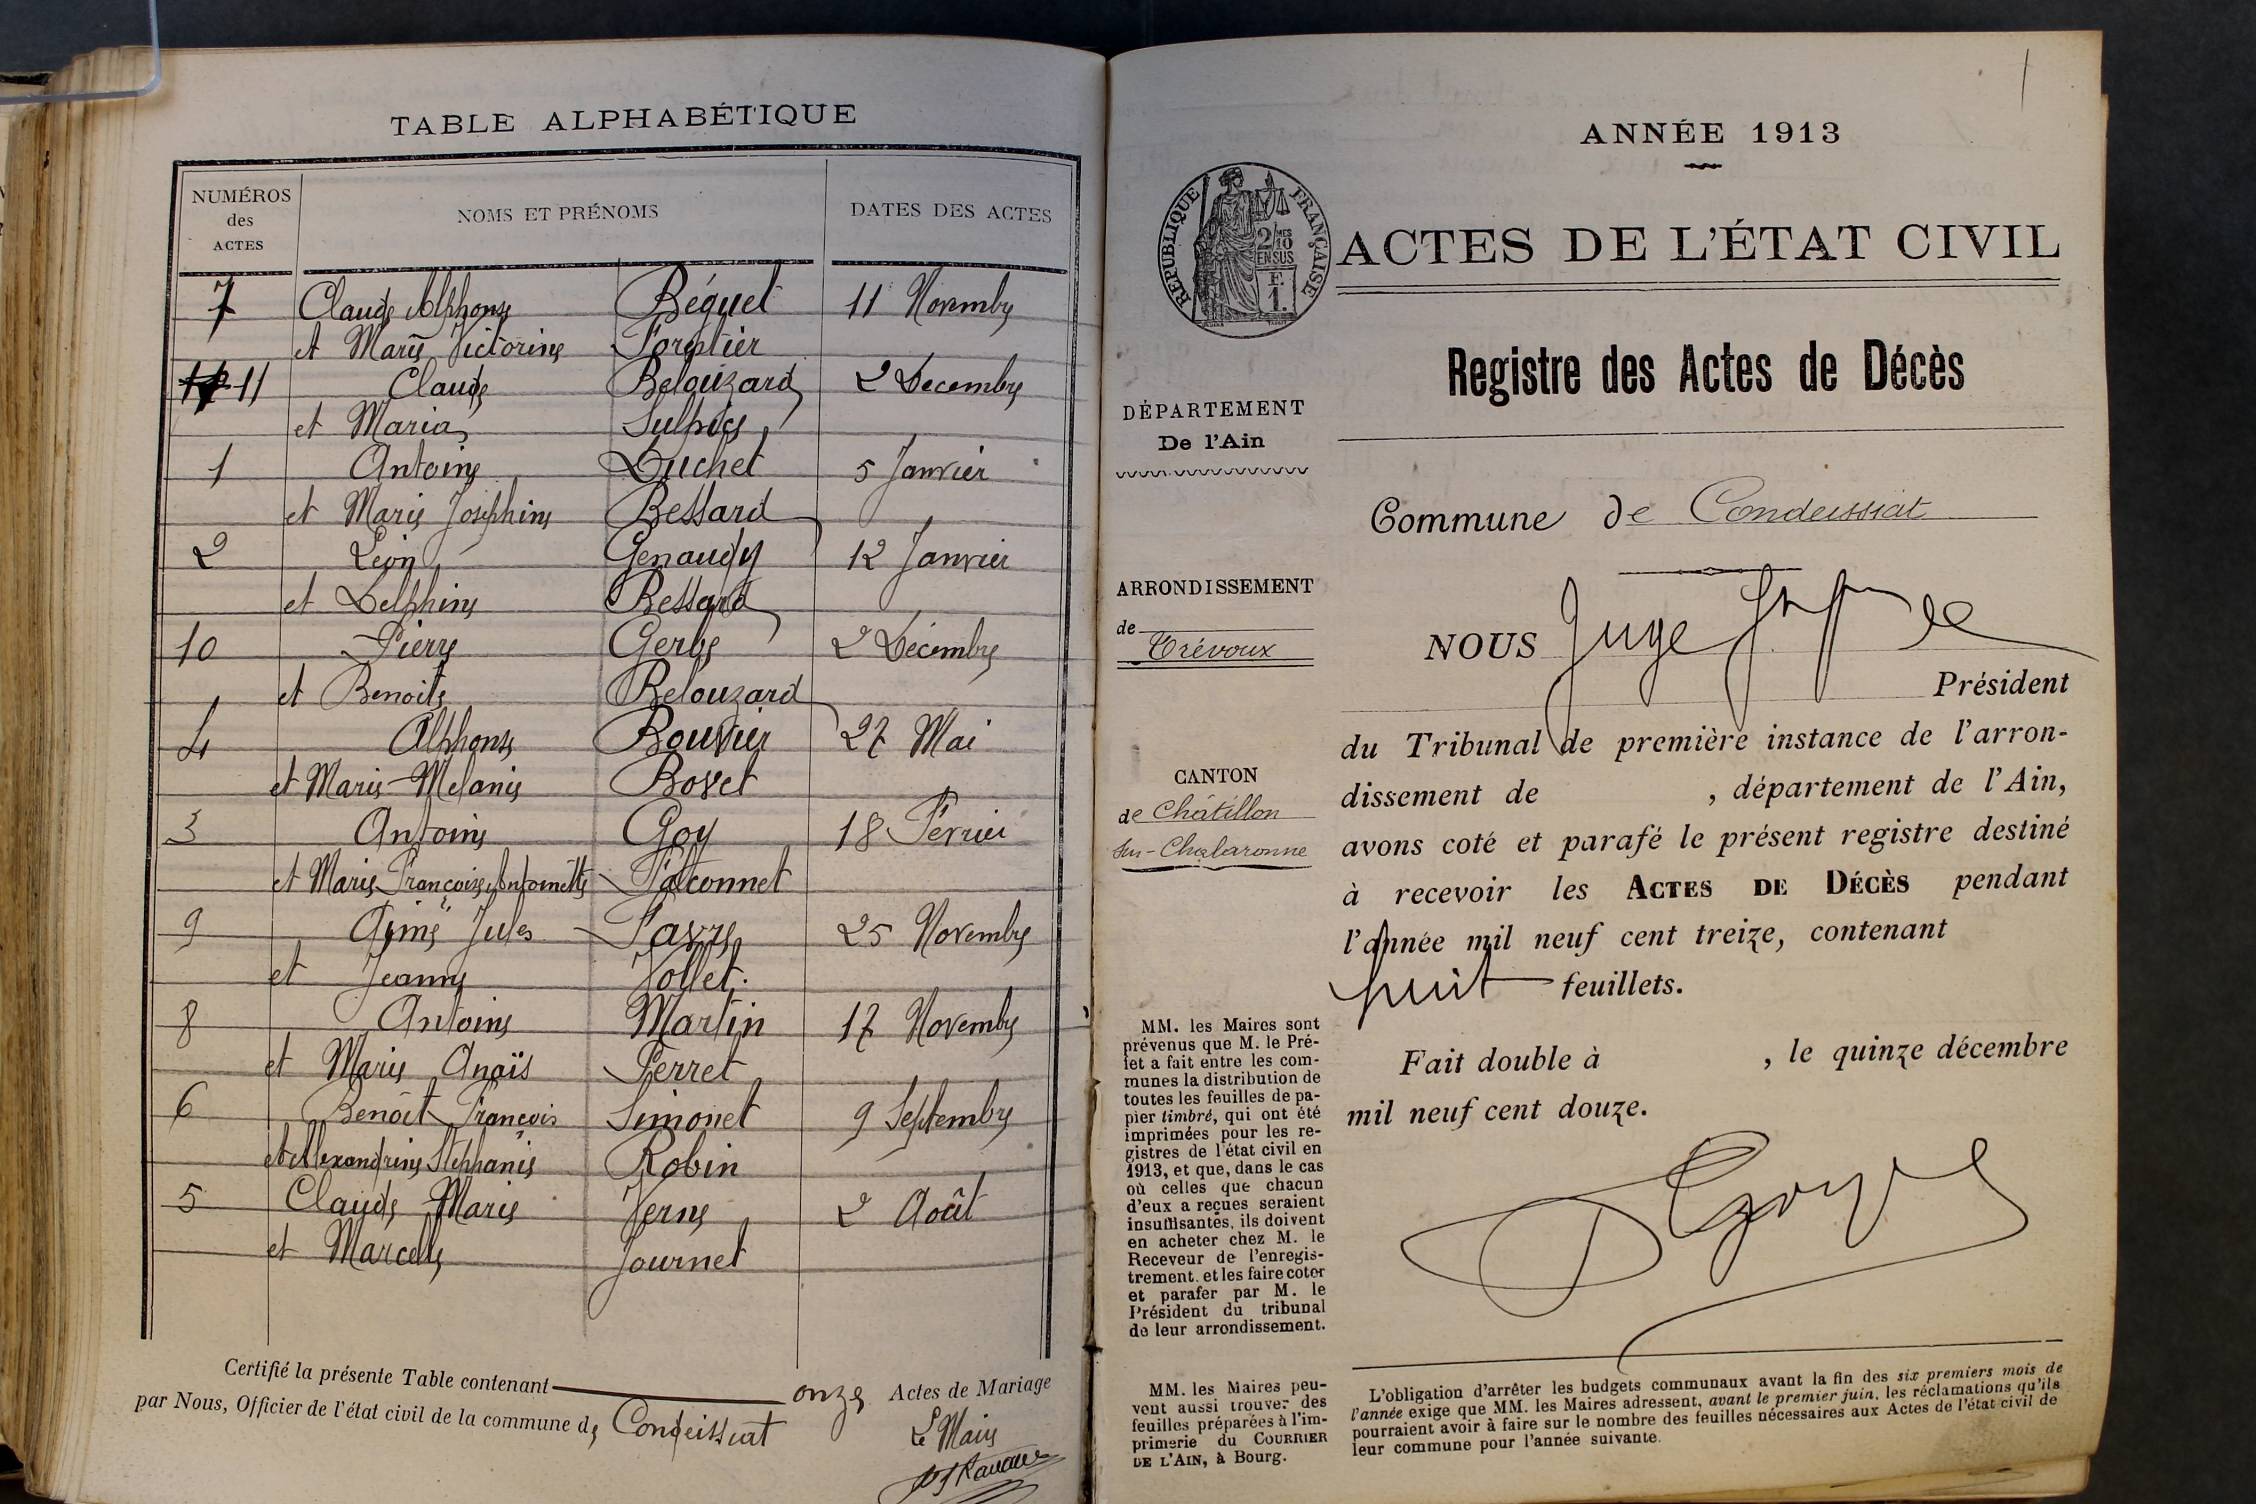 TABLE ALPHABÉTIQUE
NUMÉROS des ACTES
NOMS ET PRÉNOMS
DATES DES ACTES
7 Claude Alphonse Béguet 11 Novembre
et Marie Victorine Forêtier
11 Claude Belouzard 2 Decembre
et Maria Sulpice
1 Antoine Duchet 5 Janvier
et Marie Josephine Bessard
2 Léon Genaudy 12 Janvier
et Delphine Bessard
10 Pierre Gerbe 2 Décembre
et Benoite Belouzard
4 Alphonse Bouvier 27 Mai
et Marie-Melanie Bovet
3 Antoine Goy 18 Février
et Marie Françoise Antoinette Falconnet
9 Aimé Jules Favre 25 Novembre
et Jeanne Jollet.
8 Antoine Martin 17 Novembre
et Marie Anaïs Perret
6 Benôit François Simonet 9 Septembre
et Alexandrine Stéphanie Robin
5 Claude Marie Verne 2 Août
et Marcelle Journet
Certifié la présente Table contenant onze Actes de Mariage
par Nous, Officier de l'état civil de la commune de Condeissiat
Le Maire
1
ANNÉE 1913
RÉPUBLIQUE FRANÇAISE
2/10 MES
EN SUS
F.
1.
ACTES DE L'ÉTAT CIVIL
Registre des Actes de Décès
DÉPARTEMENT
De l'Ain
ARRONDISSEMENT
de
Trévoux
CANTON
de Châtillon
sur-Chalaronne
Commune de Condeissiat
NOUS Juge
Président
du Tribunal de première instance de l'arron-
dissement de , département de l'Ain,
avons coté et parafé le présent registre destiné
à recevoir les ACTES DE DÉCÈS pendant
l'année mil neuf cent treize, contenant
huit feuillets.
Fait double à , le quinze décembre
mil neuf cent douze.
MM. les Maires sont
prévenus que M. le Pré-
fet a fait entre les com-
munes la distribution de
toutes les feuilles de pa-
pier timbré, qui ont été
imprimées pour les re-
gistres de l'état civil en
1913, et que, dans le cas
où celles que chacun
d'eux a reçues seraient
insuffisantes, ils doivent
en acheter chez M. le
Receveur de l'enregis-
trement. et les faire coter
et parafer par M. le
Président du tribunal
de leur arrondissement.
MM. les Maires peu-
vent aussi trouver des
feuilles préparées à l'im-
primerie du COURRIER
DE L'AIN, à Bourg.
L'obligation d'arrêter les budgets communaux avant la fin des six premiers mois de
l'année exige que MM. les Maires adressent, avant le premier juin, les réclamations qu'ils
pourraient avoir à faire sur le nombre des feuilles nécessaires aux Actes de l'état civil de
leur commune pour l'année suivante.